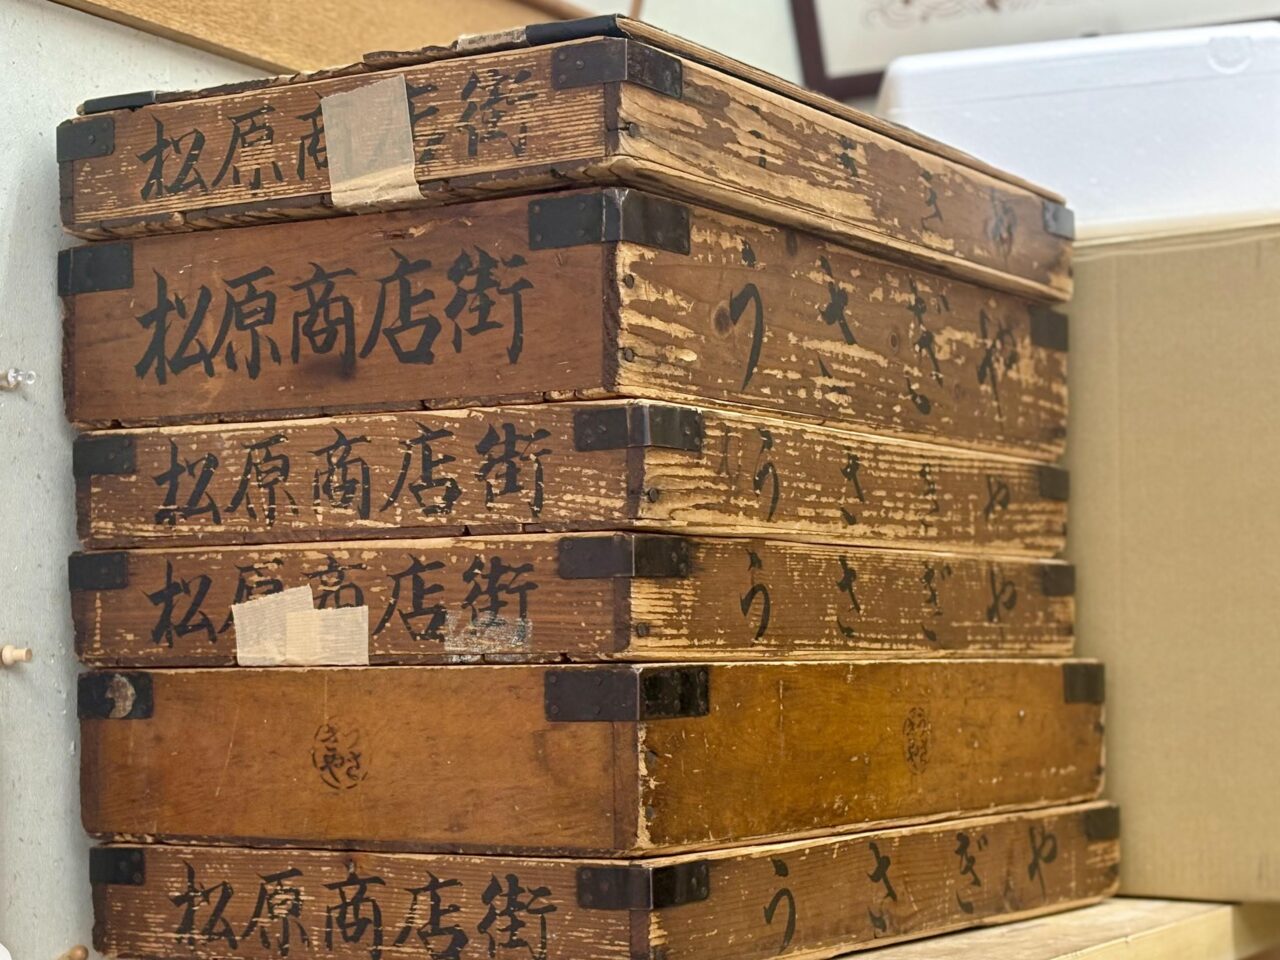 松原商店街
うさぎや
松原商店街
うさぎや
松原商店街
うさぎや
松原商店街
うさぎや
うさぎや
うさぎや
松原商店街
うさぎや